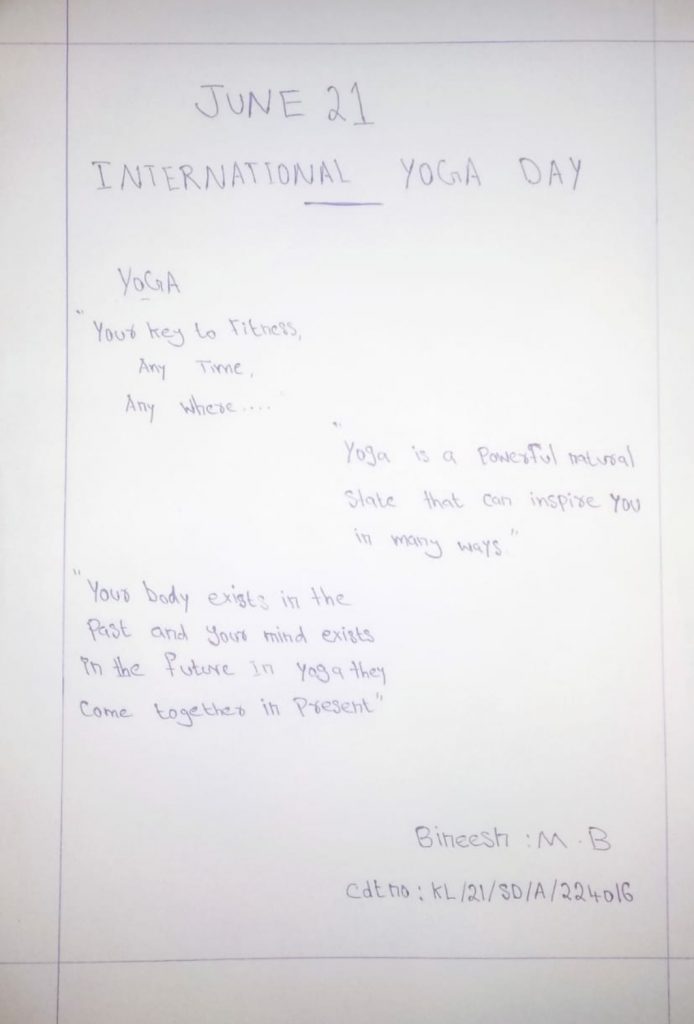 JUNE 21
INTERNATIONAL YOGA DAY
YOGA
"Your key to Fitness,
Any Time,
Any where....
"Yoga is a Powerful natural
State that can inspire you
in many ways"
"Your body exists in the
Past and your mind exists
in the future In yoga they
Come together in Present"
Bineesh : M . B
Cdt no : KL/21/SD/A/224016